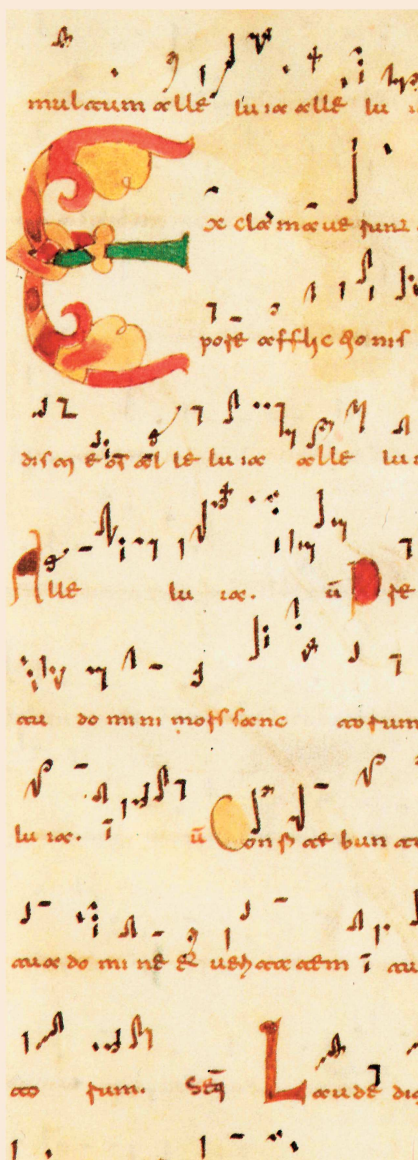 mulatum alle lu ia alle lu i
Exclamaverunt
pore afflictionis
disti eos al le lu ia alle lu i
Alle lu ia. v̄ Pre
tu do mini mors sanc torum
lu ia. ī v̄ Confite bun tu
tua do mi ne et veritatem ī tu
to rum. Seq̄ Laude dig